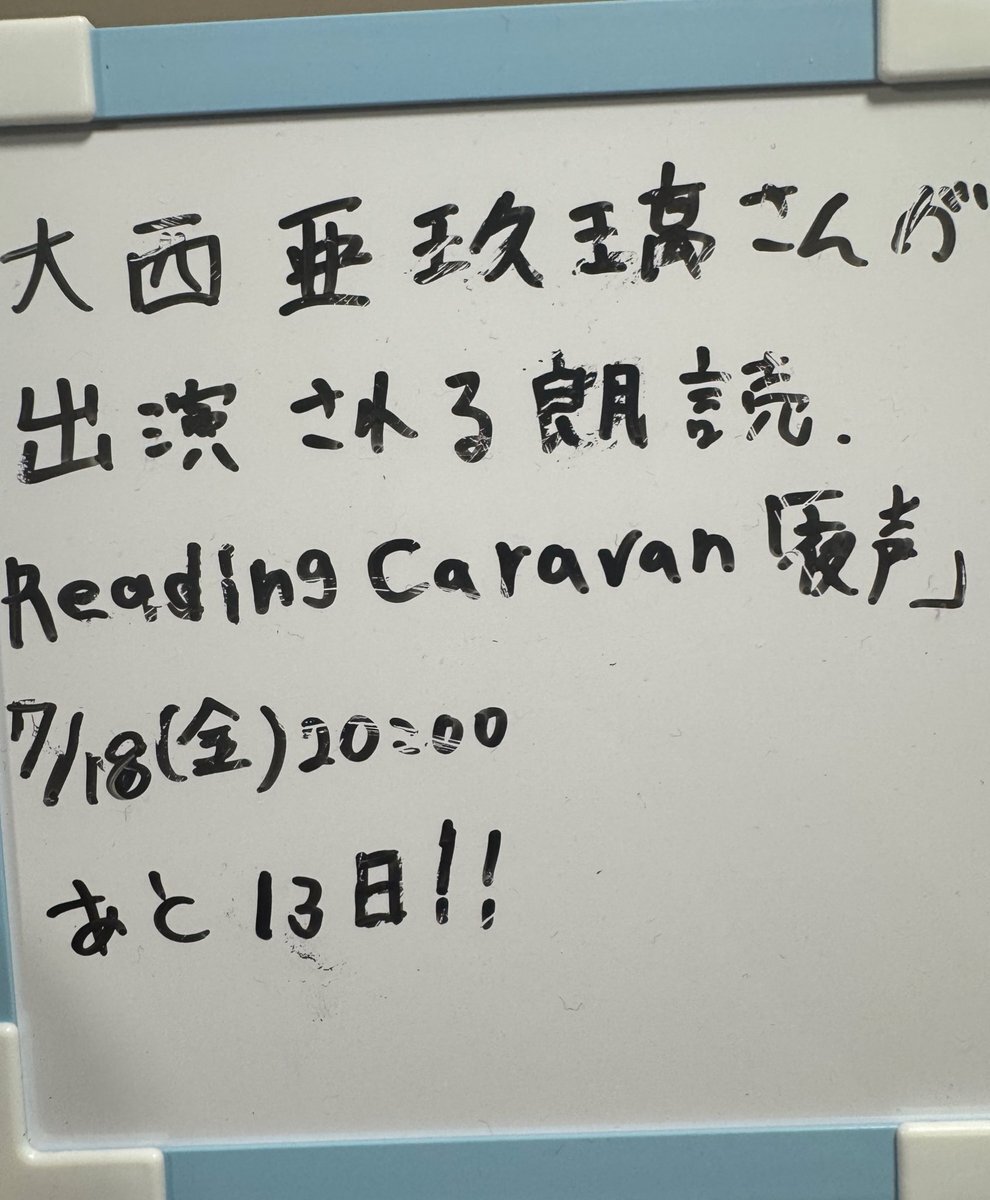 大西亜玖璃さんが
出演される朗読.
Reading Caravan「夜声」
7/18(金)20:00
あと13日!!